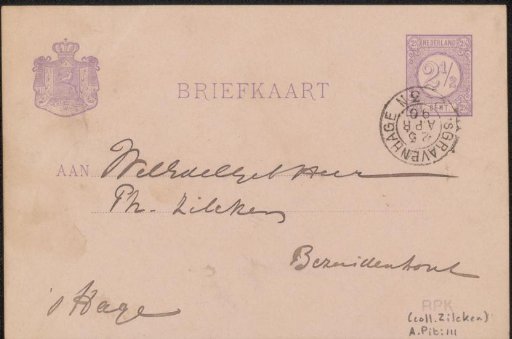 NEDERLAND
2½
CENT
BRIEFKAART
'S GRAVENHAGE N3
25
APR
90
AAN WelEdelGeb Heer
Ph. Zilcken
Bezuidenhout
's Hage
RPK
(coll. Zilcken)
A.Pit: III